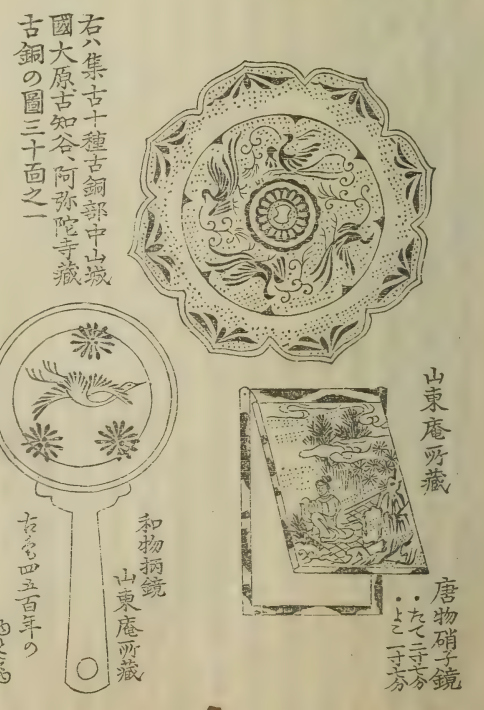 右八集古十種古銅部中山城
國大原古知谷、阿弥陀寺藏
古銅の圖三十面之一
山東庵所藏
唐物硝子鏡
たて二寸七分
よこ一寸六分
和物柄鏡
山東庵所藏
四五百年の